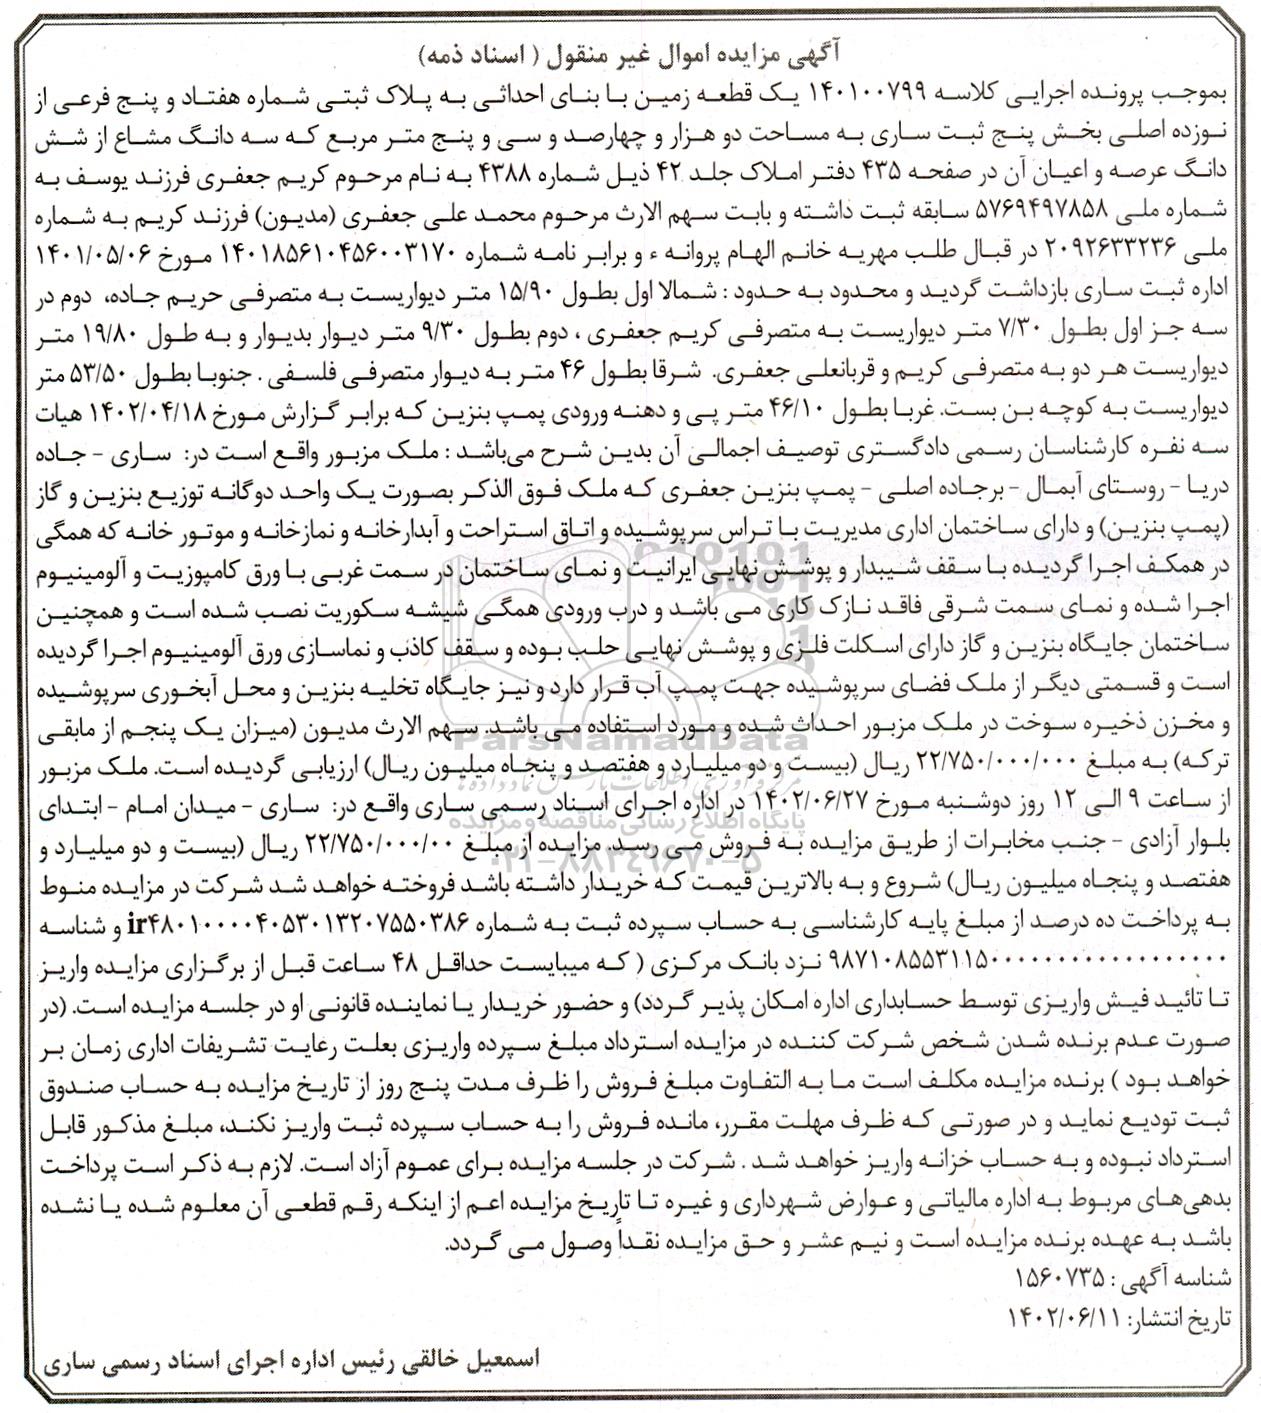 آگهی مزایده اموال غیر منقول ( اسناد ذمه)
بموجب پرونده اجرایی کلاسه ۱۴۰۱۰۰۷۹۹ یک قطعه زمین با بنای احداثی به پلاک ثبتی شماره هفتاد و پنج فرعی از
نوزده اصلی بخش پنج ثبت ساری به مساحت دو هزار و چهارصد و سی و پنج متر مربع که سه دانگ مشاع از شش
دانگ عرصه و اعیان آن در صفحه ۴۳۵ دفتر املاک جلد ۴۲ ذیل شماره ۴۳۸۸ به نام مرحوم کریم جعفری فرزند یوسف به
شماره ملی ۵۷۶۹۴۹۷۸۵۸ سابقه ثبت داشته و بابت سهم الارث مرحوم محمد علی جعفری (مدیون) فرزند کریم به شماره
ملی ۲۰۹۲۶۳۳۲۳۶ در قبال طلب مهریه خانم الهام پروانه ء و برابر نامه شماره ۱۴۰۱۸۵۶۱۰۴۵۶۰۰۳۱۷۰ مورخ ۱۴۰۱/۰۵/۰۶
اداره ثبت ساری بازداشت گردید و محدود به حدود : شمالا اول بطول ۱۵/۹۰ متر دیواریست به متصرفی حریم جاده، دوم در
سه جز اول بطول ۷/۳۰ متر دیواریست به متصرفی کریم جعفری ، دوم بطول ۹/۳۰ متر دیوار بدیوار و به طول ۱۹/۸۰ متر
دیواریست هر دو به متصرفی کریم و قربانعلی جعفری. شرقا بطول ۴۶ متر به دیوار متصرفی فلسفی . جنوبا بطول ۵۳/۵۰ متر
دیواریست به کوچه بن بست. غربا بطول ۴۶/۱۰ متر پی و دهنه ورودی پمپ بنزین که برابر گزارش مورخ ۱۴۰۲/۰۴/۱۸ هیات
سه نفره کارشناسان رسمی دادگستری توصیف اجمالی آن بدین شرح می‌باشد : ملک مزبور واقع است در: ساری - جاده
دریا - روستای آبمال - برجاده اصلی - پمپ بنزین جعفری که ملک فوق الذکر بصورت یک واحد دوگانه توزیع بنزین و گاز
(پمپ بنزین) و دارای ساختمان اداری مدیریت با تراس سرپوشیده و اتاق استراحت و آبدارخانه و نمازخانه و موتور خانه که همگی
در همکف اجرا گردیده با سقف شیبدار و پوشش نهایی ایرانیت و نمای ساختمان در سمت غربی با ورق کامپوزیت و آلومینیوم
اجرا شده و نمای سمت شرقی فاقد نازک کاری می باشد و درب ورودی همگی شیشه سکوریت نصب شده است و همچنین
ساختمان جایگاه بنزین و گاز دارای اسکلت فلزی و پوشش نهایی حلب بوده و سقف کاذب و نماسازی ورق آلومینیوم اجرا گردیده
است و قسمتی دیگر از ملک فضای سرپوشیده جهت پمپ آب قرار دارد و نیز جایگاه تخلیه بنزین و محل آبخوری سرپوشیده
و مخزن ذخیره سوخت در ملک مزبور احداث شده و مورد استفاده می باشد. سهم الارث مدیون (میزان یک پنجم از مابقی
ParsNamadData
ترکه) به مبلغ ۲۲/۷۵۰/۰۰۰/۰۰۰ ریال (بیست و دو میلیارد و هفتصد و پنجاه میلیون ریال) ارزیابی گردیده است. ملک مزبور
از ساعت ۹ الی ۱۲ روز دوشنبه مورخ ۱۴۰۲/۰۶/۲۷ در اداره اجرای اسناد رسمی ساری واقع در: ساری - میدان امام - ابتدای
پایگاه اطلاع رسانی مناقصه و مزایده
بلوار آزادی - جنب مخابرات از طریق مزایده به فروش می رسد. مزایده از مبلغ ۲۲/۷۵۰/۰۰۰/۰۰ ریال (بیست و دو میلیارد و
۰۲۱-۸۸۳۴۹۶۷۰-۵
هفتصد و پنجاه میلیون ریال) شروع و به بالاترین قیمت که خریدار داشته باشد فروخته خواهد شد شرکت در مزایده منوط
به پرداخت ده درصد از مبلغ پایه کارشناسی به حساب سپرده ثبت به شماره ir۴۸۰۱۰۰۰۰۴۰۵۳۰۱۳۲۰۷۵۵۰۳۸۶ و شناسه
نزد بانک مرکزی ( که میبایست حداقل ۴۸ ساعت قبل از برگزاری مزایده واریز
تا تائید فیش واریزی توسط حسابداری اداره امکان پذیر گردد) و حضور خریدار یا نماینده قانونی او در جلسه مزایده است. (در
صورت عدم برنده شدن شخص شرکت کننده در مزایده استرداد مبلغ سپرده واریزی بعلت رعایت تشریفات اداری زمان بر
خواهد بود ) برنده مزایده مکلف است ما به التفاوت مبلغ فروش را ظرف مدت پنج روز از تاریخ مزایده به حساب صندوق
ثبت تودیع نماید و در صورتی که ظرف مهلت مقرر، مانده فروش را به حساب سپرده ثبت واریز نکند، مبلغ مذکور قابل
استرداد نبوده و به حساب خزانه واریز خواهد شد . شرکت در جلسه مزایده برای عموم آزاد است. لازم به ذکر است پرداخت
بدهی‌های مربوط به اداره مالیاتی و عوارض شهرداری و غیره تا تاریخ مزایده اعم از اینکه رقم قطعی آن معلوم شده یا نشده
باشد به عهده برنده مزایده است و نیم عشر و حق مزایده نقداً وصول می گردد.
شناسه آگهی : ۱۵۶۰۷۳۵
تاریخ انتشار: ۱۴۰۲/۰۶/۱۱
اسمعیل خالقی رئیس اداره اجرای اسناد رسمی ساری